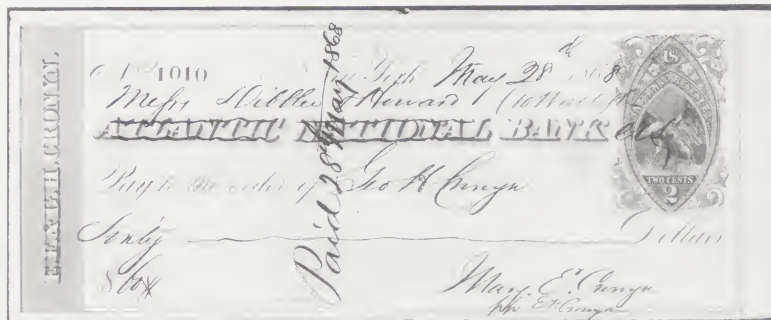 E. E. & G. H. CRONYN.
No. 1010 New York May 28th 1868
Messrs Dibblee & Howard (10 Wall St
ATLANTIC NATIONAL BANK
Pay to the order of Geo H Cronyn
Sixty Dollars
$60
Mary E. Cronyn
pr E E Cronyn
Paid 28th May 1868
U.S.
INTER. REVENUE
TWO CENTS
2